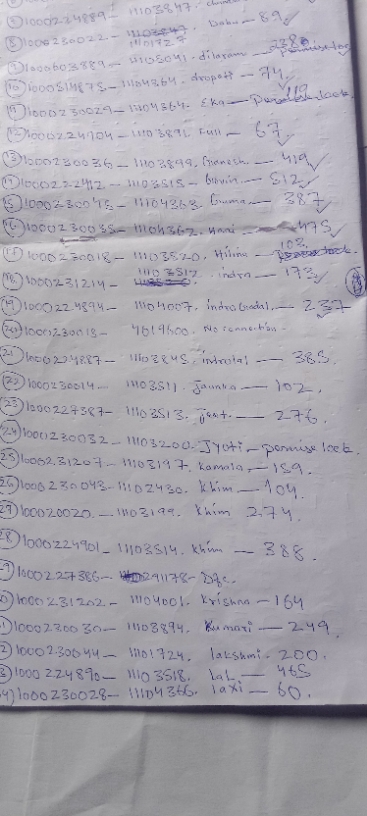 1000224889 - 11103847 -
8) 1000230022 - 11101727 Dabu - 89
9) 1000603389 - 11103041 - dilaram -
10) 1000514875 - 11104364 - dropati - 74
11) 1000230029 - 1104364. Eka -
12) 1000224904 - 11103891. Full - 67
13) 1000230036 - 11103899. Ganesh - 419
14) 1000222412 - 11103515 - Govin - 512
15) 1000230045 - 11104363. Guma - 387
16) 1000230035 - 11104362. Hari - 475
17) 1000230018 - 11103520. 103.
18) 1000231214 - 11103512 indra - 173
19) 1000224894 - 11104007. - 237
20) 1000230015 - 4019600. No connection -
21) 1000224887 - 11103845. - 385.
22) 1000230014 - 11103511. Jamuna - 102.
23) 1000227387 - 11103513. Jant. - 276.
24) 1000230032 - 11103200. Jyoti - permise lock.
25) 1000231207 - 11103197. Kamala, - 159.
26) 1000230043 - 11102430. Khim - 104.
27) 100020020. - 11103199. Khim 274.
28) 1000224901 - 11103514. Khim - 388.
9) 1000227386 - 291178 - D/c.
0) 1000231202 - 11104001. Krishna - 164
1) 1000230030 - 11103894. Kumari - 249.
2) 1000230044 - 11101724. lakshmi. 200.
3) 1000224890 - 11103518. Lal - 465
4) 1000230028 - 11104366. laxi - 60.